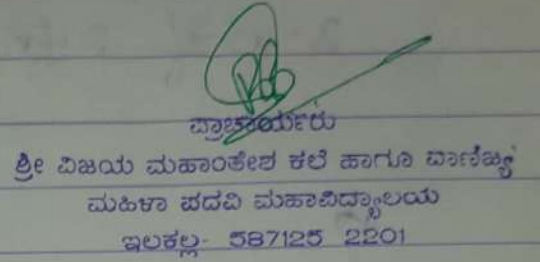 ಪ್ರಾಚಾರ್ಯರು
ಶ್ರೀ ವಿಜಯ ಮಹಾಂತೇಶ ಕಲೆ ಹಾಗೂ ವಾಣಿಜ್ಯ
ಮಹಿಳಾ ಪದವಿ ಮಹಾವಿದ್ಯಾಲಯ
ಇಲಕಲ್ಲ- 587125 2201